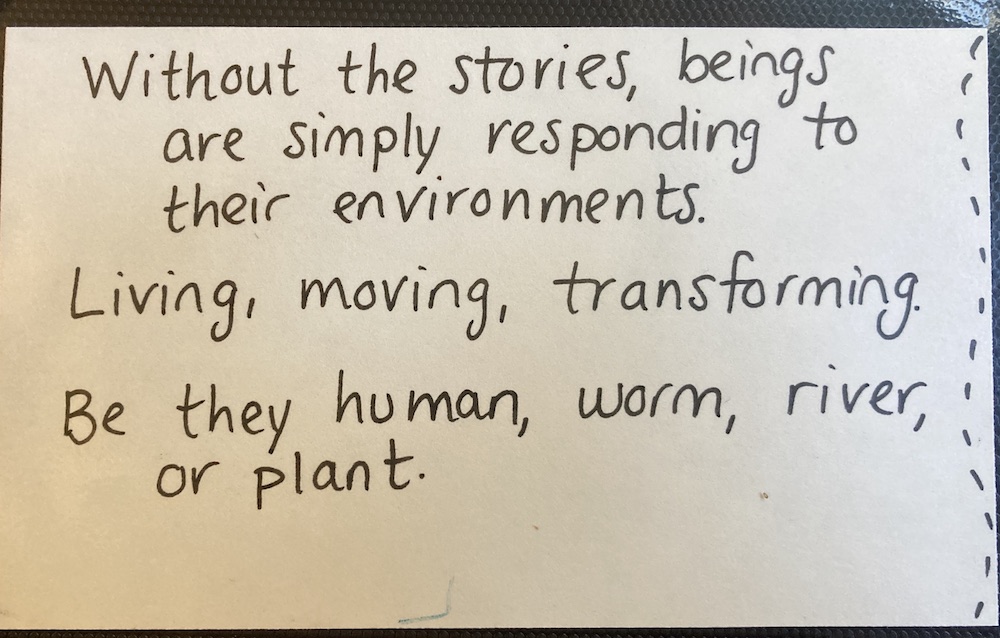 Without the stories, beings
are simply responding to
their environments.
Living, moving, transforming.
Be they human, worm, river,
or plant.